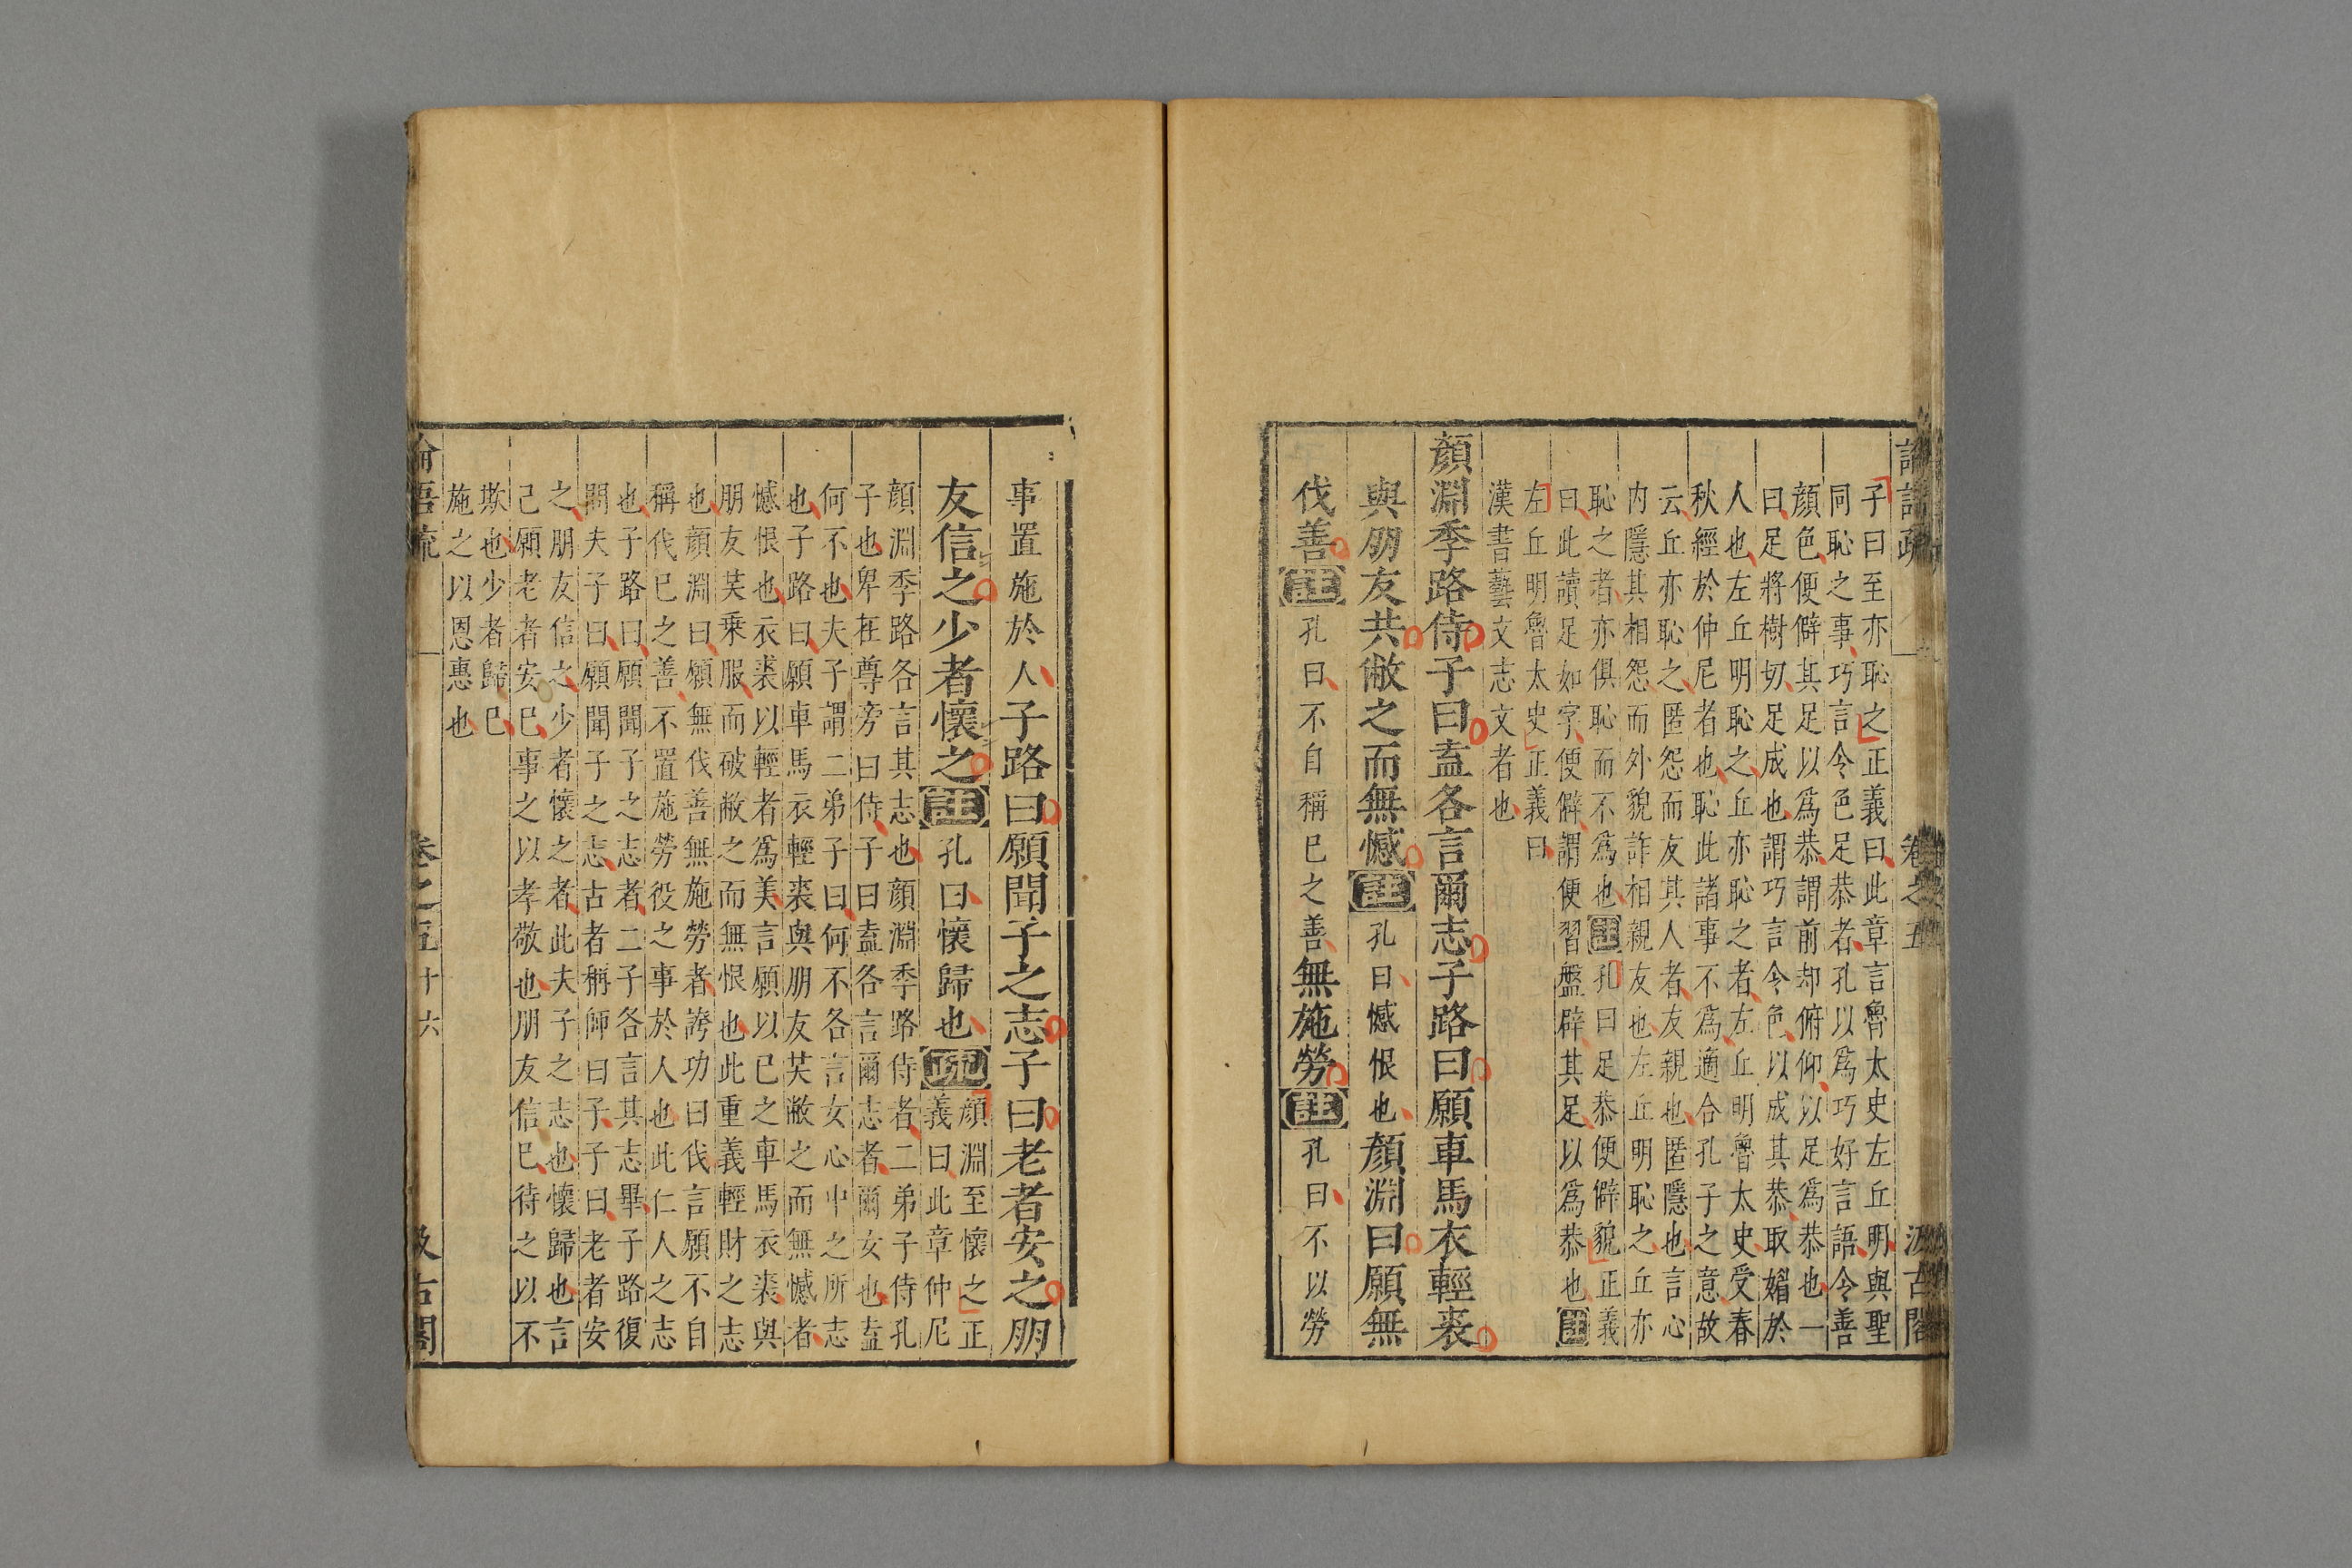 論語疏 卷之五 汲古閣
子曰至亦恥之正義曰此章言魯太史左丘明與聖
同恥之事巧言令色足恭者孔以爲巧好言語令善
顏色便僻其足以爲恭謂前却俯仰以足爲恭也一
曰足將樹切足成也謂巧言令色以成其恭取媚於
人也左丘明恥之丘亦恥之者左丘明魯太史受春
秋經於仲尼者也恥此諸事不爲適合孔子之意故
云丘亦恥之匿怨而友其人者友親也匿隱也言心
内隱其相怨而外貌詐相親友也左丘明恥之丘亦
恥之者亦俱恥而不爲也註孔曰足恭便僻貌正義
曰此讀足如字便僻謂便習盤辟其足以爲恭也註
左丘明魯太史正義曰
漢書藝文志文者也
顏淵季路侍子曰盍各言爾志子路曰願車馬衣輕裘
與朋友共敝之而無憾註孔曰憾恨也顏淵曰願無
伐善註孔曰不自稱已之善無施勞註孔曰不以勞
事置施於人子路曰願聞子之志子曰老者安之朋
友信之少者懷之註孔曰懷歸也疏顏淵至懷之正
義曰此章仲尼
顏淵季路各言其志也顏淵季路侍者二弟子侍孔
子也卑在尊旁曰侍子曰盍各言爾志者爾女也盍
何不也夫子謂二弟子曰何不各言女心中之所志
也子路曰願車馬衣輕裘與朋友共敝之而無憾者
憾恨也衣裘以輕者爲美言願以已之車馬衣裘與
朋友共乗服而破敝之而無恨也此重義輕財之志
也顏淵曰願無伐善無施勞者誇功曰伐言願不自
稱伐已之善不置施勞役之事於人也此仁人之志
也子路曰願聞子之志者二子各言其志畢子路復
問夫子曰願聞子之志古者稱師曰子子曰老者安
之朋友信之少者懷之者此夫子之志也懷歸也言
己願老者安已事之以孝敬也朋友信已待之以不
欺也少者歸已
施之以恩惠也
論語疏 卷之五 十六 汲古閣